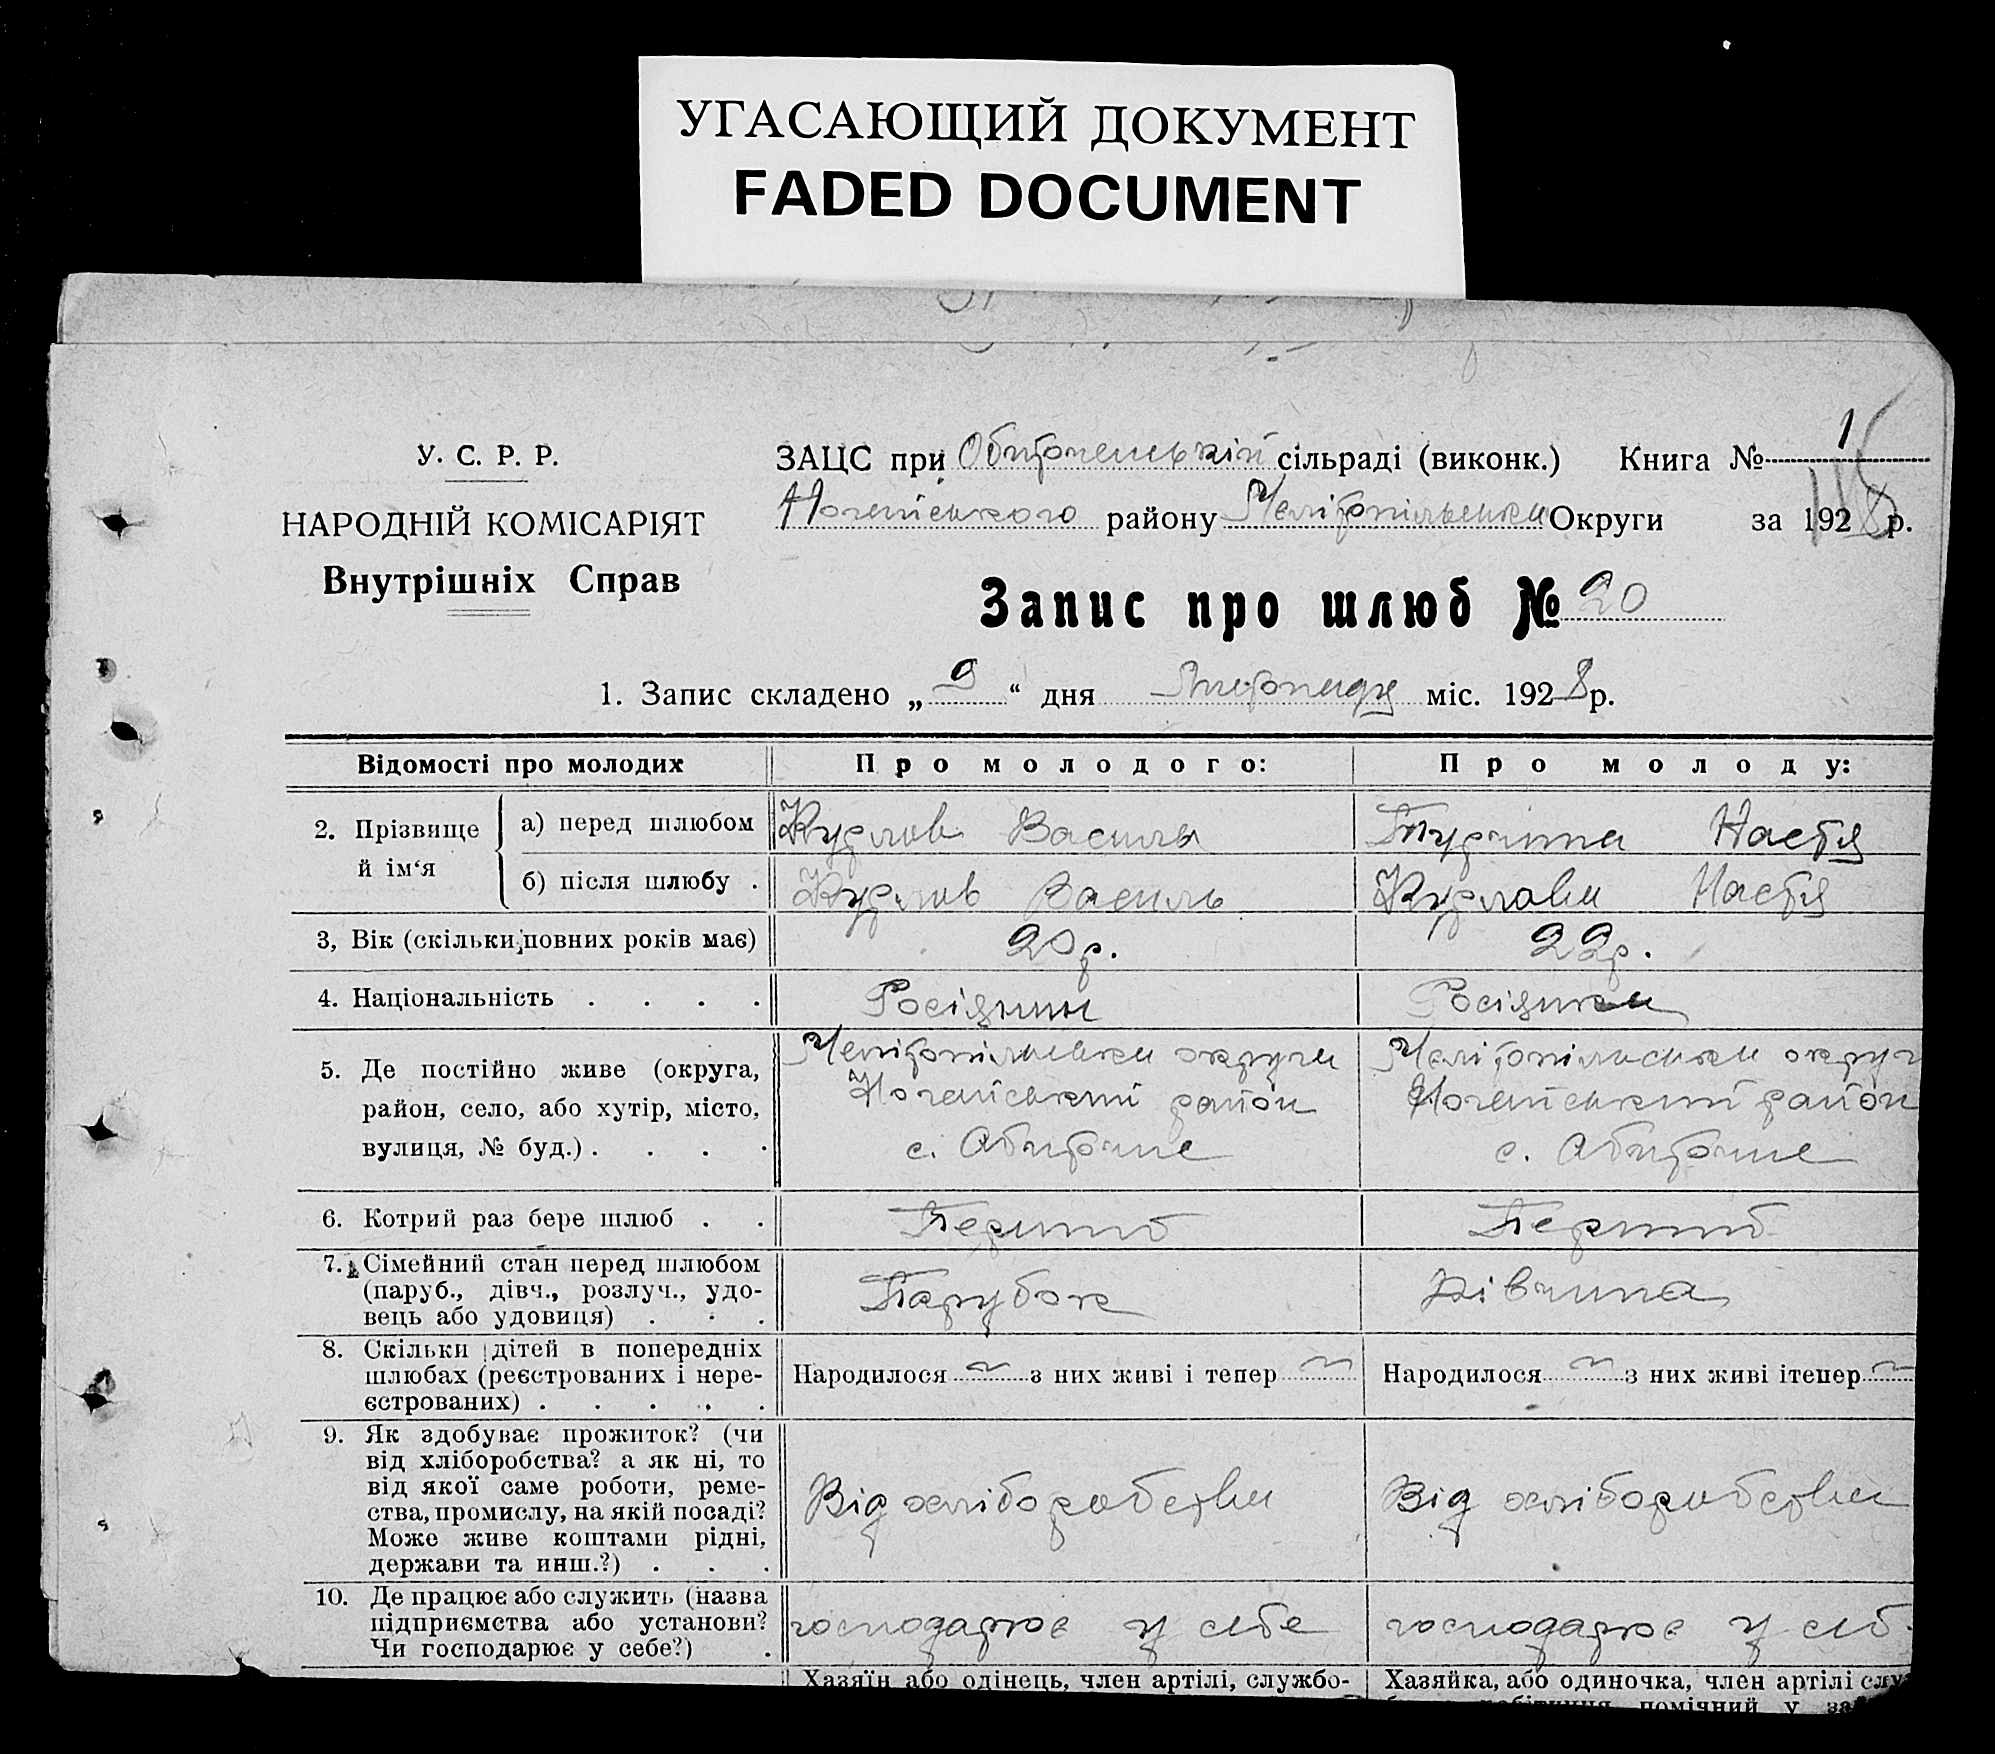 УГАСАЮЩИЙ ДОКУМЕНТ
FADED DOCUMENT
У. С. Р. Р.
НАРОДНІЙ КОМІСАРІЯТ
Внутрішніх Справ
ЗАЦС при Обиточенській сільраді (виконк.) Книга № 1
Ногайського району Мелітопільськи Округи за 1928 р.
Запис про шлюб № 20
1. Запис складено „ 9 “ дня Листопада міс. 1928 р.
Відомості про молодих
Про молодого:
Про молоду:
2. Прізвище й ім‘я
а) перед шлюбом
Курлов Василь
Настя
б) після шлюбу .
Курлов Василь
Курлова Настя
3, Вік (скільки повних років має)
20 р.
22 р.
4. Національність . . . .
Росіянин
Росіянка
5. Де постійно живе (округа,
район, село, або хутір, місто,
вулиця, № буд.) . . . .
Мелітопільська округа
Ногайський район
с. Обиточне
Мелітопільська округ
Ногайський район
с. Обиточне
6. Котрий раз бере шлюб . .
Перший
Перший
7. Сімейний стан перед шлюбом
(паруб., дівч., розлуч., удо-
вець або удовиця) . . .
Парубок
Дівчина
8. Скільки дітей в попередніх
шлюбах (реєстрованих і нере-
єстрованих) . . . . .
Народилося ~ з них живі і тепер ~
Народилося ~ з них живі ітепер ~
9. Як здобуває прожиток? (чи
від хліборобства? а як ні, то
від якої саме роботи, реме-
ства, промислу, на якій посаді?
Може живе коштами рідні,
держави та инш.?) . . .
Від хліборобства
Від хліборобства
10. Де працює або служить (назва
підприємства або установи?
Чи господарює у себе?) .
господарює у себе
господарює у себ.
Хазяїн або одінець, член артілі, службо-
Хазяйка, або одиночка, член артілі слу
помічний у за